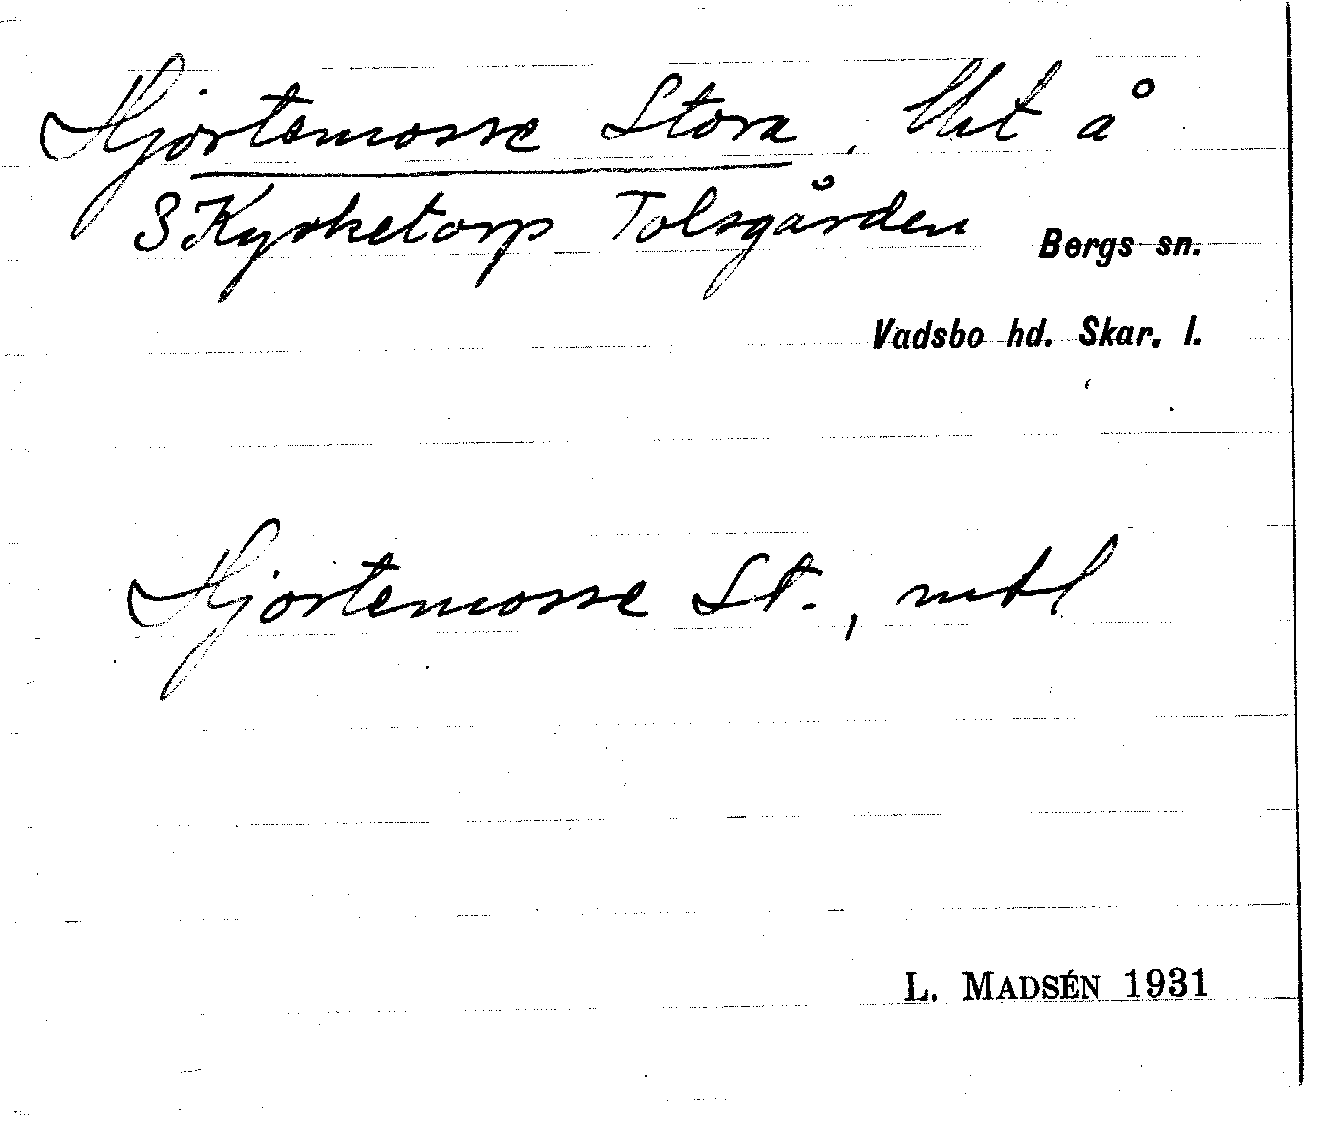 Hjortemosse Stora, lht å
S Kyrketorp Tolsgården Bergs sn.
Vadsbo hd. Skar. l.
Hjortemosse St., mbl
L. MADSÉN 1931